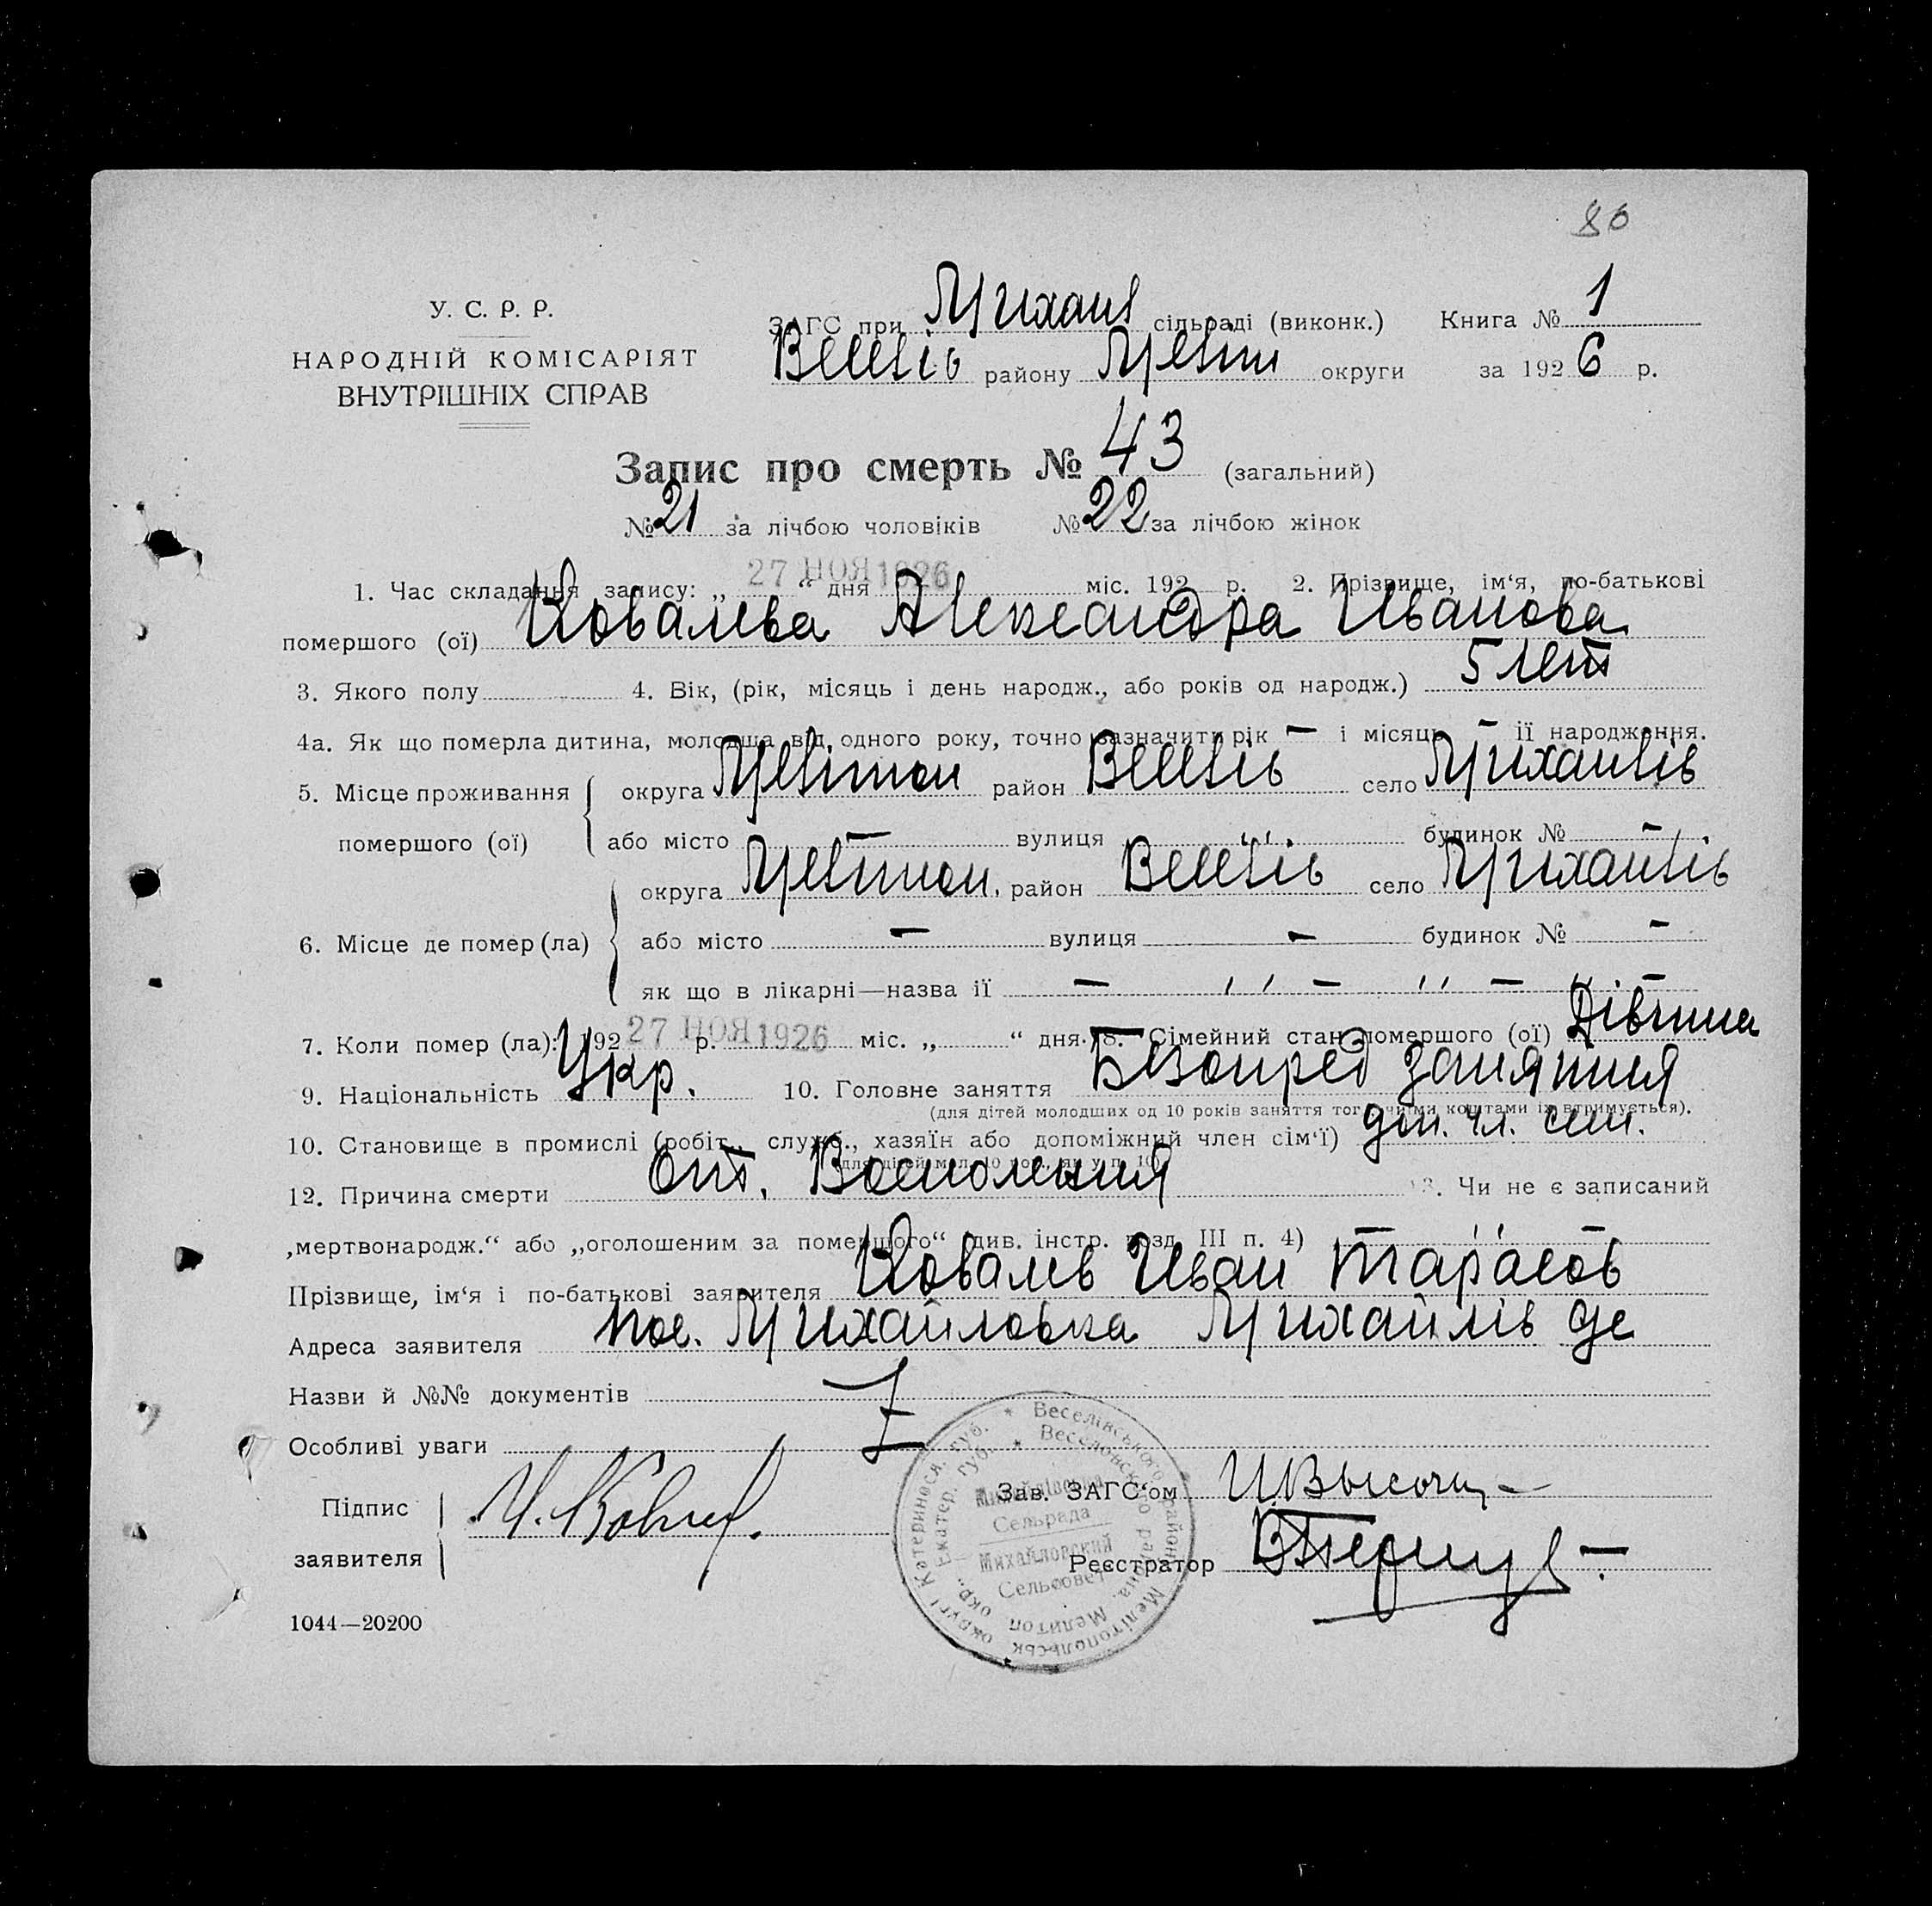 80
У. С. Р. Р.
НАРОДНІЙ КОМІСАРІЯТ
ВНУТРІШНІХ СПРАВ
ЗАГС при Михайл сільраді (виконк.) Книга № 1
Веселів району Меліт округи за 1926 р.
Запис про смерть № 43 (загальний)
№ 21 за лічбою чоловіків № 22 за лічбою жінок
1. Час складання запису: „ 27 НОЯ 1926 “ дня міс. 192 р. 2. Прізвище, ім‘я, по-батькові
помершого (ої) Ковалева Александра Иванова
3. Якого полу 4. Вік, (рік, місяць і день народж., або років од народж.) 5 лет
4а. Як що померла дитина, молодша від одного року, точно зазначити рік — і місяць — ії народження.
5. Місце проживання помершого (ої) округа Мелітоп район Веселів село Михайлів
або місто — вулиця будинок № —
6. Місце де помер (ла) округа Мелітоп. район Веселів село Михайлів
або місто — вулиця — будинок № —
як що в лікарні—назва ії — „ — „ — —
7. Коли помер (ла): 192 27 НОЯ 1926 р. міс. „ “ дня. 8. Сімейний стан помершого (ої) Дівчина
9. Національність Укр. 10. Головне заняття Безопред занятия
(для дітей молодших од 10 років заняття того, чиїми коштами їх втримується).
10. Становище в промислі (робіт., служб., хазяїн або допоміжний член сім‘ї) доп. чл. сем.
(для дітей мол. 10 рок., як у п. 10)
12. Причина смерти От. Воспаления 13. Чи не є записаний
„мертвонародж.“ або „оголошеним за помершого“ (див. інстр. розд. III п. 4) — „ —
Прізвище, ім‘я і по-батькові заявителя Ковалев Иван Тарасов
Адреса заявителя пос. Михайловка Михайлів
Назви й №№ документів
Особливі уваги
Підпис заявителя И. Ковалев.
Зав. ЗАГС‘ом
Реєстратор
Веселівського району Мелітопольськ округи Катериносл. губ.
Веселовского района, Мелитоп окр., Екатер. губ.
Михайлівська
Сельрада
Михайловский
Сельсовет
1044—20200